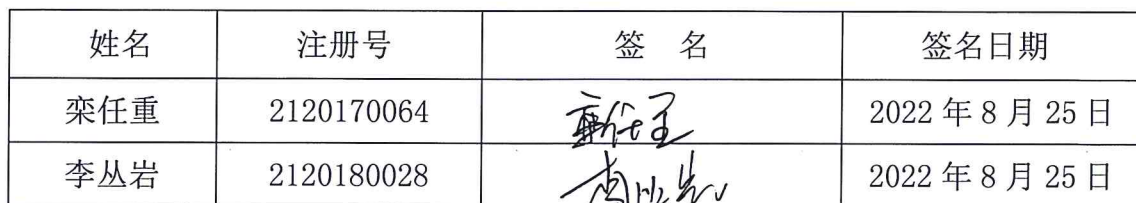 姓名 注册号 签 名 签名日期
栾任重 2120170064 栾任重 2022 年 8 月 25 日
李丛岩 2120180028 李丛岩 2022 年 8 月 25 日